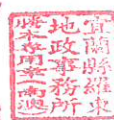 宜蘭縣羅東
地政事務所
謄本專用章(南澳)